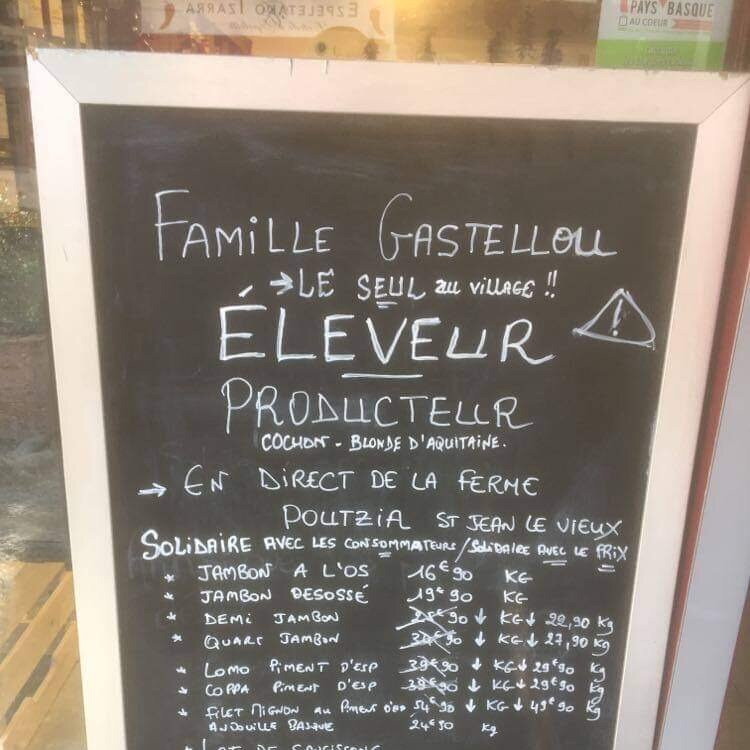 EZPELETAKO IZARRA
PAYS BASQUE
AU COEUR
FAMILLE GASTELLOU
→ LE SEUL AU VILLAGE !!
ÉLEVEUR
!
PRODUCTEUR
COCHON - BLONDE D'AQUITAINE.
→ EN DIRECT DE LA FERME
POUTZIA ST JEAN LE VIEUX
SOLIDAIRE AVEC LES CONSOMMATEURS / SOLIDAIRE AVEC LE PRIX
* JAMBON A L'OS 16€90 KG
* JAMBON DESOSSÉ 19€90 KG
* DEMI JAMBON €90 ↓ KG ↓ 22,90 Kg
* QUART JAMBON €90 ↓ KG ↓ 27,90 Kg
* LOMO PIMENT D'ESP 39€90 ↓ KG ↓ 29€90 Kg
* COPPA PIMENT D'ESP 39€90 ↓ KG ↓ 29€90 Kg
* FILET MIGNON AU PIMENT D'ESP 54€90 ↓ KG ↓ 49€90 Kg
ANDOUILLE BASQUE 24€90 Kg
* LOT DE SAUCISSONS